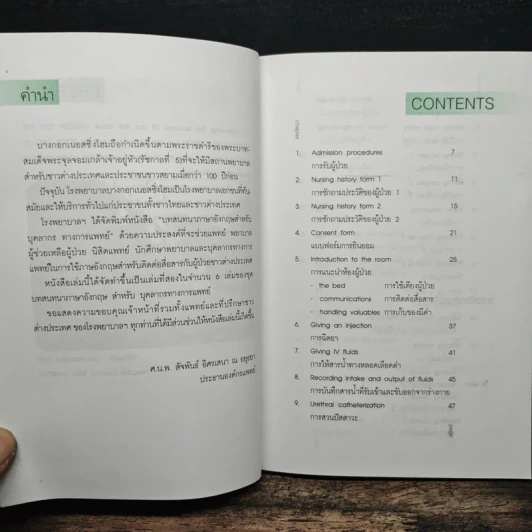 คำนำ
บางกอกเนอสซิ่งโฮมถือกำเนิดขึ้นตามพระราชดำริของพระบาท-
สมเด็จพระจุลจอมเกล้าเจ้าอยู่หัว(รัชกาลที่ 5)ที่จะให้มีสถานพยาบาล
สำหรับชาวต่างประเทศและประชาชนชาวสยามเมื่อกว่า 100 ปีก่อน
ปัจจุบัน โรงพยาบาลบางกอกเนอสซิ่งโฮมเป็นโรงพยาบาลเอกชนที่ทัน
สมัยและให้บริการทั่วไปแก่ประชาชนทั้งชาวไทยและชาวต่างประเทศ
โรงพยาบาลฯ ได้จัดพิมพ์หนังสือ "บทสนทนาภาษาอังกฤษสำหรับ
บุคลากร ทางการแพทย์" ด้วยความประสงค์ที่จะช่วยแพทย์ พยาบาล
ผู้ช่วยเหลือผู้ป่วย นิสิตแพทย์ นักศึกษาพยาบาลและบุคลากรทางการ
แพทย์ในการใช้ภาษาอังกฤษสำหรับติดต่อสื่อสารกับผู้ป่วยชาวต่างประเทศ
หนังสือเล่มนี้ได้จัดทำขึ้นเป็นเล่มที่สองในจำนวน 6 เล่มของชุด
บทสนทนาภาษาอังกฤษ สำหรับ บุคลากรทางการแพทย์
ขอแสดงความขอบคุณเจ้าหน้าที่รวมทั้งแพทย์และที่ปรึกษาชาว
ต่างประเทศ ของโรงพยาบาลฯ ทุกท่านที่ได้มีส่วนช่วยให้หนังสือเล่มนี้เกิดขึ้น
ศ.น.พ. สัจพันธ์ อิศรเสนา ณ อยุธยา
ประธานองค์กรแพทย์
CONTENTS
1. Admission procedures 7
การรับผู้ป่วย
2. Nursing history form 1 11
การซักถามประวัติของผู้ป่วย 1
3. Nursing history form 2 15
การซักถามประวัติของผู้ป่วย 2
4. Consent form 21
แบบฟอร์มการยินยอม
5. Introduction to the room 25
การแนะนำห้องผู้ป่วย
- the bed การใช้เตียงผู้ป่วย
- communications การติดต่อสื่อสาร
- handling valuables การเก็บของมีค่า
6. Giving an injection 37
การฉีดยา
7. Giving IV fluids 41
การให้สารน้ำทางหลอดเลือดดำ
8. Recording intake and output of fluids 45
การบันทึกสารน้ำที่รับเข้าและขับออกจากร่างกาย
9. Urethral catheterization 47
การสวนปัสสาวะ